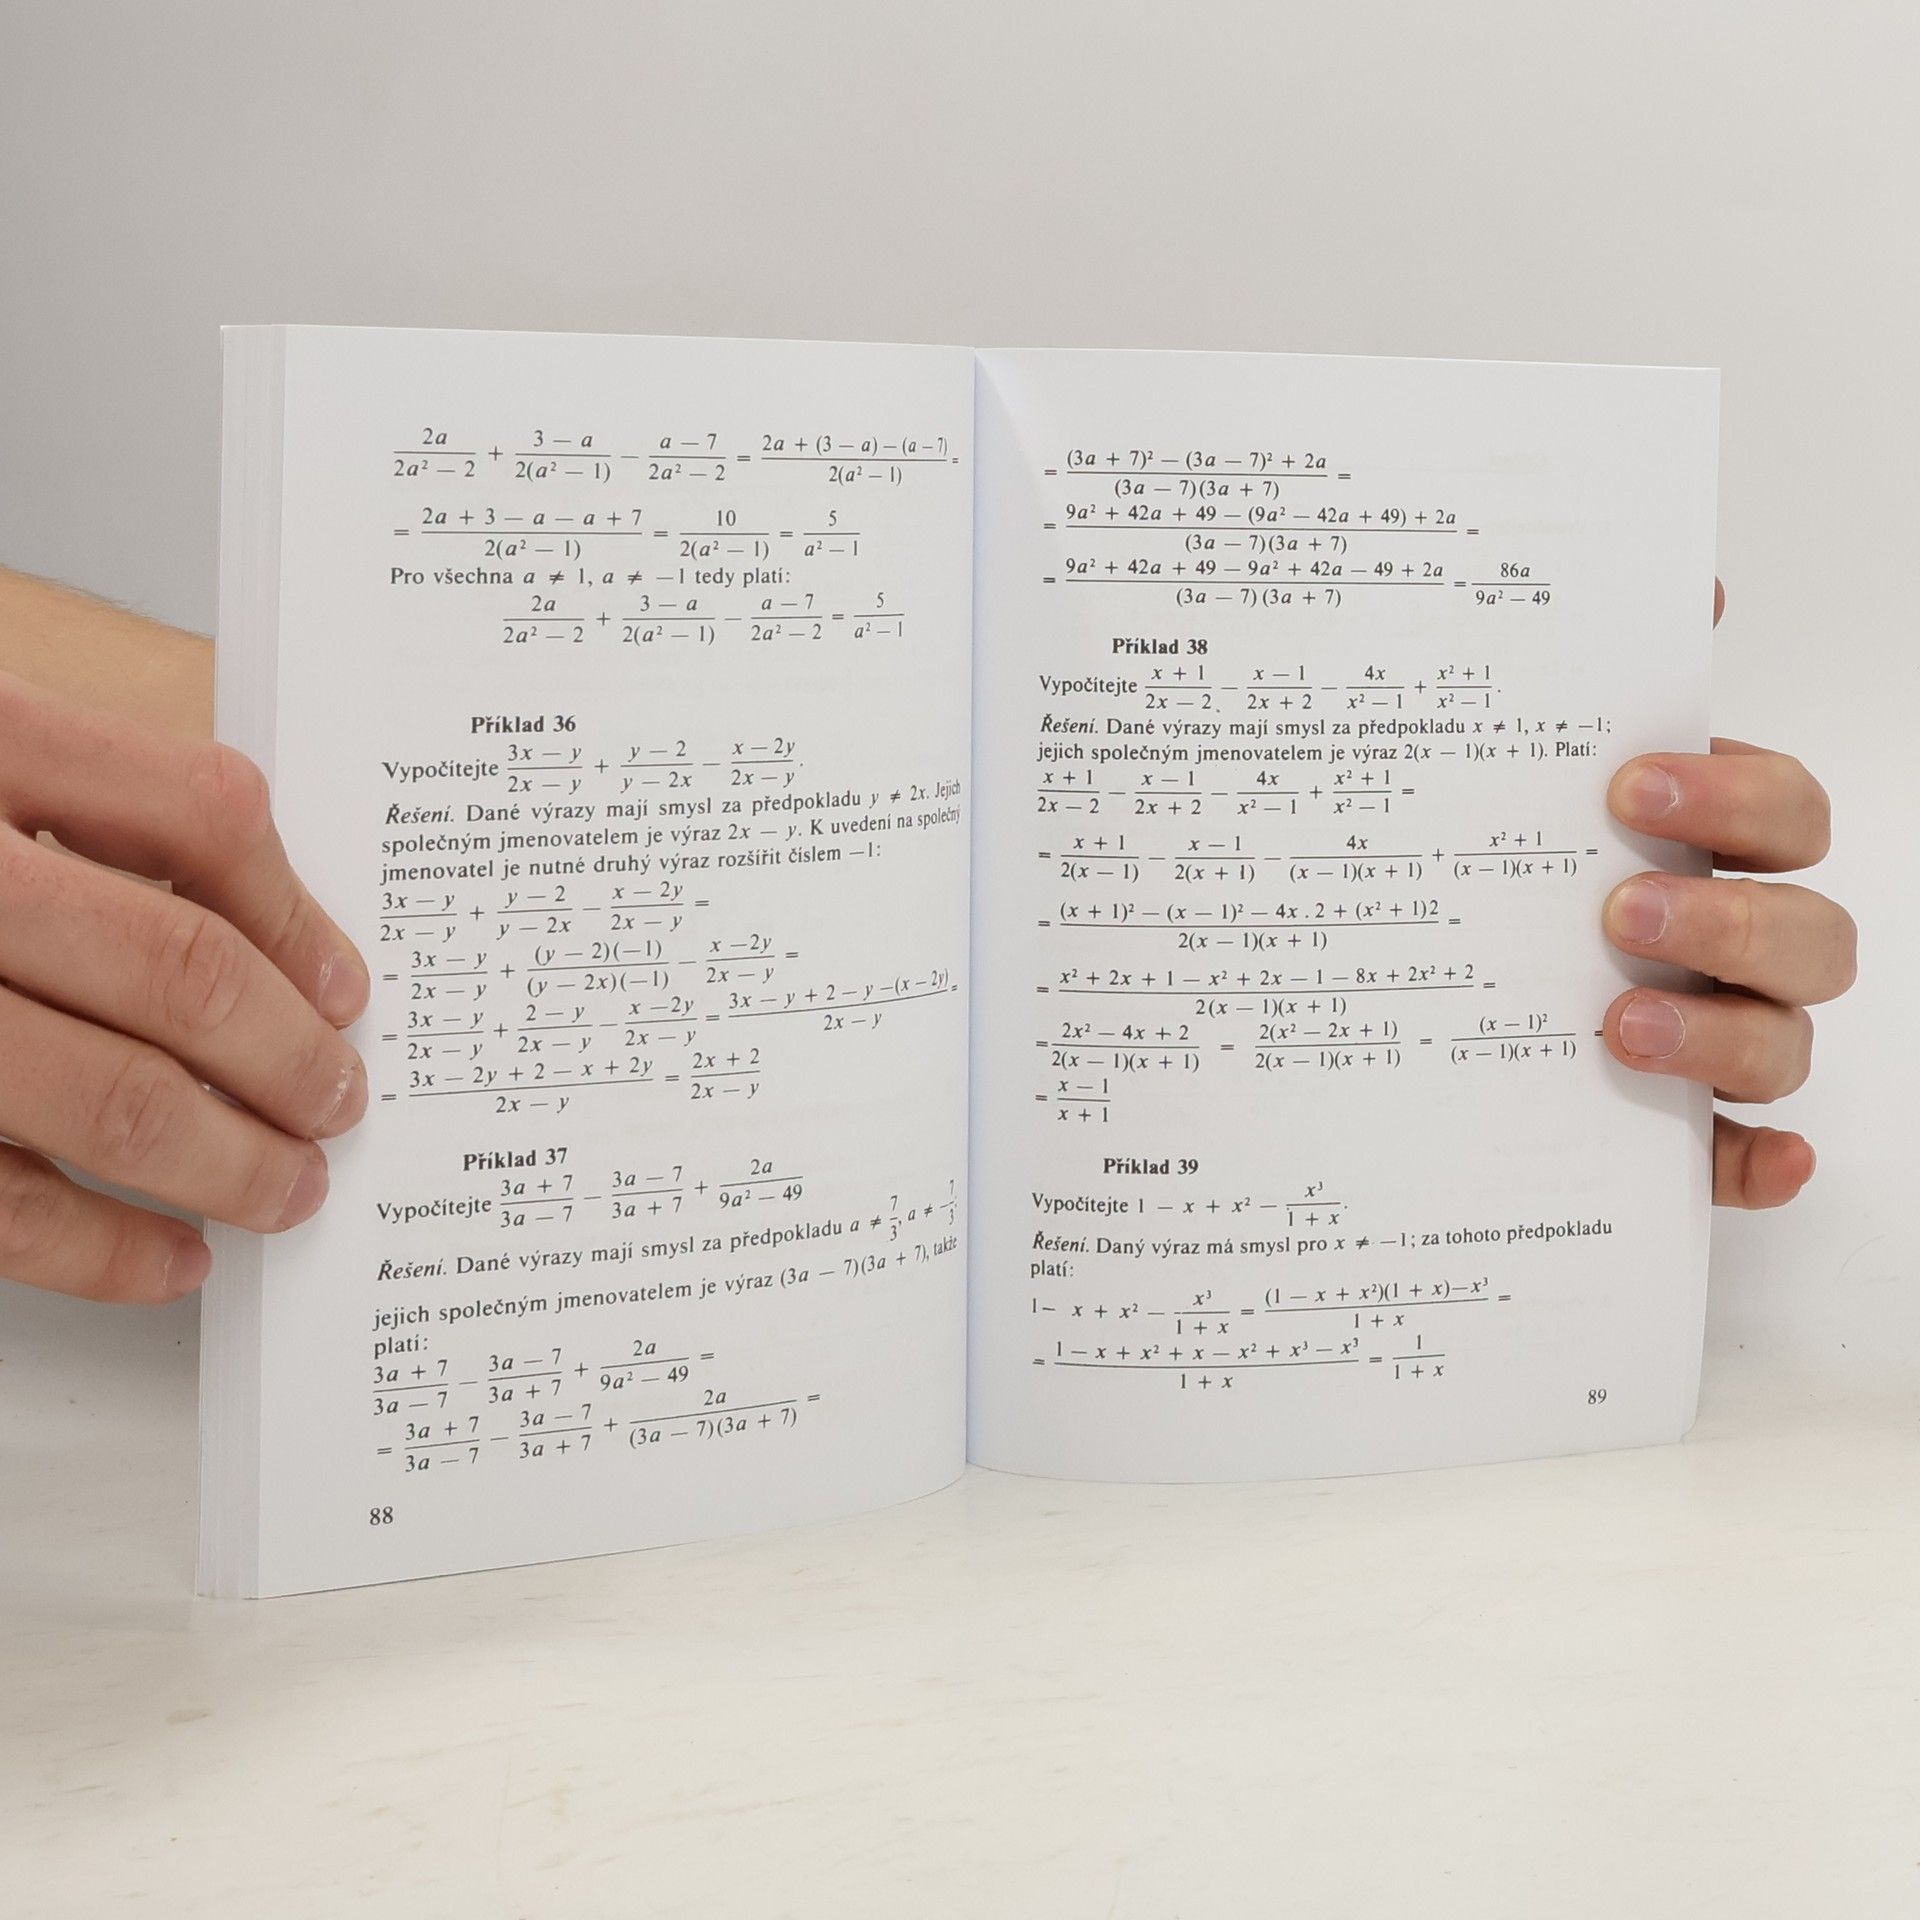 2a/(2a² — 2) + (3 — a)/(2(a² — 1)) — (a — 7)/(2a² — 2) = (2a + (3 — a) — (a — 7))/(2(a² — 1)) =
= (2a + 3 — a — a + 7)/(2(a² — 1)) = 10/(2(a² — 1)) = 5/(a² — 1)
Pro všechna a ≠ 1, a ≠ —1 tedy platí:
2a/(2a² — 2) + (3 — a)/(2(a² — 1)) — (a — 7)/(2a² — 2) = 5/(a² — 1)
Příklad 36
Vypočítejte (3x — y)/(2x — y) + (y — 2)/(y — 2x) — (x — 2y)/(2x — y).
Řešení. Dané výrazy mají smysl za předpokladu y ≠ 2x. Jejich
společným jmenovatelem je výraz 2x — y. K uvedení na společný
jmenovatel je nutné druhý výraz rozšířit číslem —1:
(3x — y)/(2x — y) + (y — 2)/(y — 2x) — (x — 2y)/(2x — y) =
= (3x — y)/(2x — y) + ((y — 2)(—1))/((y — 2x)(—1)) — (x —2y)/(2x — y) =
= (3x — y)/(2x — y) + (2 — y)/(2x — y) — (x —2y)/(2x — y) = (3x — y + 2 — y —(x — 2y))/(2x — y) =
= (3x — 2y + 2 — x + 2y)/(2x — y) = (2x + 2)/(2x — y)
Příklad 37
Vypočítejte (3a + 7)/(3a — 7) — (3a — 7)/(3a + 7) + 2a/(9a² — 49)
Řešení. Dané výrazy mají smysl za předpokladu a ≠ 7/3, a ≠ —7/3;
jejich společným jmenovatelem je výraz (3a — 7)(3a + 7), takže
platí:
(3a + 7)/(3a — 7) — (3a — 7)/(3a + 7) + 2a/(9a² — 49) =
= (3a + 7)/(3a — 7) — (3a — 7)/(3a + 7) + 2a/((3a — 7)(3a + 7)) =
88
= ((3a + 7)² — (3a — 7)² + 2a)/((3a — 7)(3a + 7)) =
= (9a² + 42a + 49 — (9a² — 42a + 49) + 2a)/((3a — 7)(3a + 7)) =
= (9a² + 42a + 49 — 9a² + 42a — 49 + 2a)/((3a — 7)(3a + 7)) = 86a/(9a² — 49)
Příklad 38
Vypočítejte (x + 1)/(2x — 2) — (x — 1)/(2x + 2) — 4x/(x² — 1) + (x² + 1)/(x² — 1).
Řešení. Dané výrazy mají smysl za předpokladu x ≠ 1, x ≠ —1;
jejich společným jmenovatelem je výraz 2(x — 1)(x + 1). Platí:
(x + 1)/(2x — 2) — (x — 1)/(2x + 2) — 4x/(x² — 1) + (x² + 1)/(x² — 1) =
= (x + 1)/(2(x — 1)) — (x — 1)/(2(x + 1)) — 4x/((x — 1)(x + 1)) + (x² + 1)/((x — 1)(x + 1)) =
= ((x + 1)² — (x — 1)² — 4x . 2 + (x² + 1)2)/(2(x — 1)(x + 1)) =
= (x² + 2x + 1 — x² + 2x — 1 — 8x + 2x² + 2)/(2(x — 1)(x + 1)) =
= (2x² — 4x + 2)/(2(x — 1)(x + 1)) = (2(x² — 2x + 1))/(2(x — 1)(x + 1)) = (x — 1)²/((x — 1)(x + 1)) =
= (x — 1)/(x + 1)
Příklad 39
Vypočítejte 1 — x + x² — x³/(1 + x).
Řešení. Daný výraz má smysl pro x ≠ —1; za tohoto předpokladu
platí:
1— x + x² — x³/(1 + x) = ((1 — x + x²)(1 + x)—x³)/(1 + x) =
= (1 — x + x² + x — x² + x³ — x³)/(1 + x) = 1/(1 + x)
89